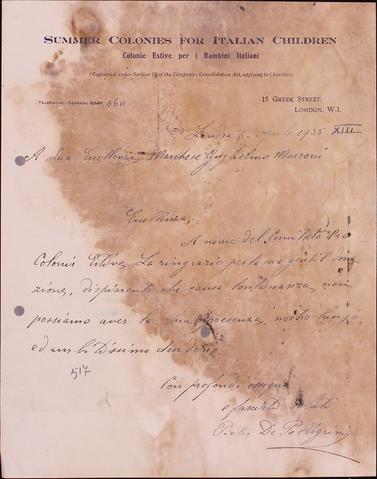 SUMMER COLONIES FOR ITALIAN CHILDREN
Colonie Estive per i Bambini Italiani
(Registered under Section 20 of the Companies Consolidation Act, applying to Charities)
TELEPHONE: GERRARD 5611
15 GREEK STREET,
LONDON, W.I.
Londra 1935 XIII
A Sua Eccellenza, Marchese Guglielmo Marconi
Eccellenza,
A nome del Comitato Pro
Colonie Estive, La ringrazio per la sua gentil
zione, dispiacente che causa lontananza, non
possiamo aver la sua presenza, nostro lungo
ed ambitissimo desiderio.
517
Con profondi ossequi
e fascisti saluti
Pietro De Pellegrini